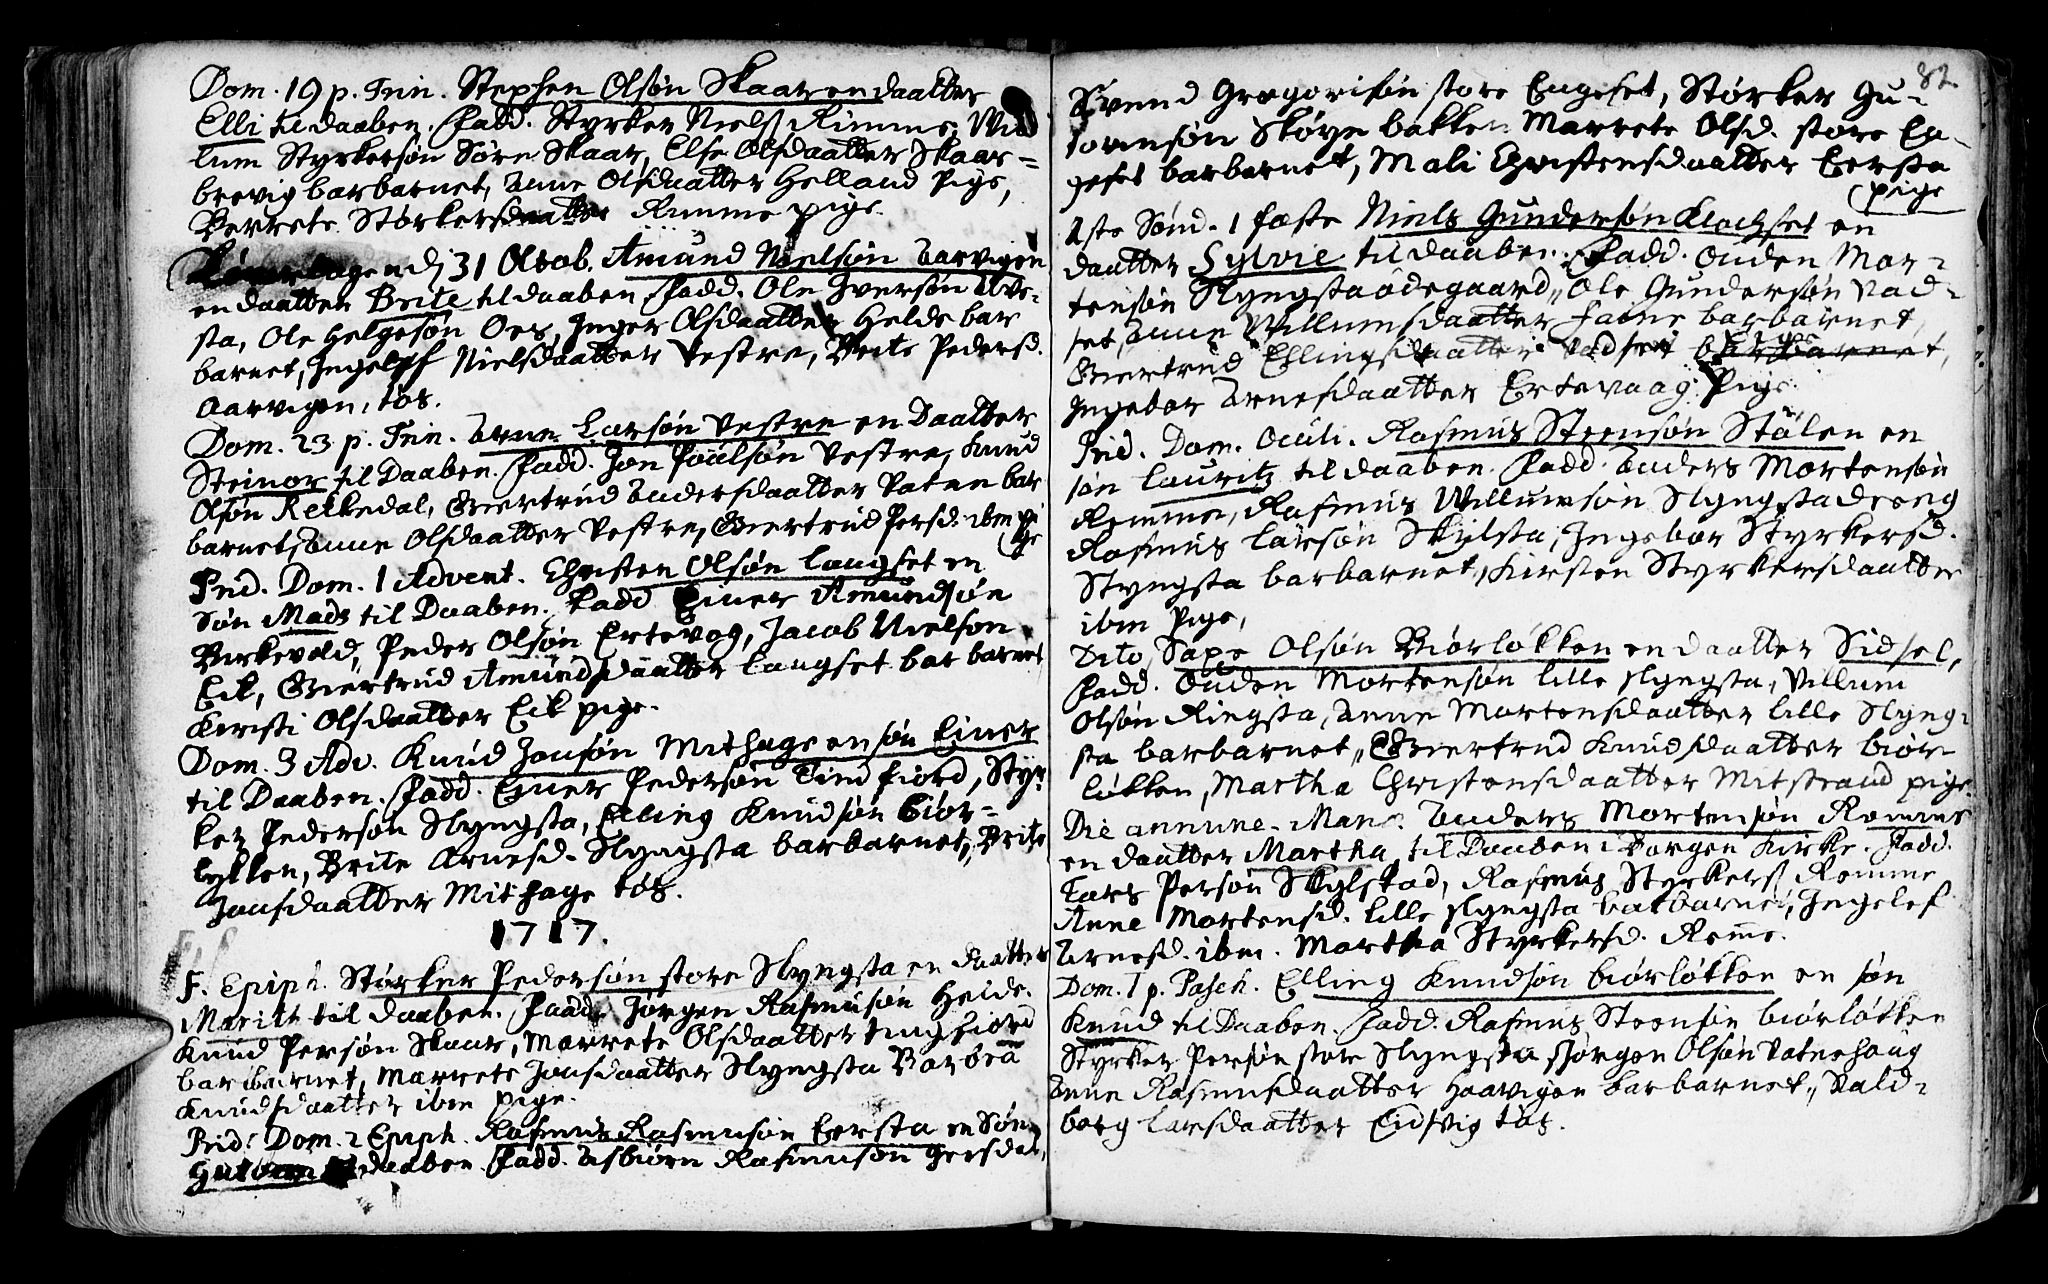 Dom. 19 p. Trin. Stephen Olsøn Skaar en daatter
Elli til daaben. Fadd. Styrker Niels Rimme, Wil
lum Styrkersøn Søre Skaar, Else Olsdaatter Skaar-
brevig bar barnet, Anne Olsdaatter Helland Pige,
Berrete Størkersdaatter Rimme pige.
31 Octob. Amund Nielsøn Aarvigen
en daatter Brite til daaben, Fadd. Ole Iversøn Ørs-
sta, Ole Helgesøn Oes, Inger Olsdaatter Helde bar
barnet, Ingeleff Nielsdaatter Vestre, Brite Pedersd.
Aarvigen, tøs.
Dom. 23 p. Trin. Arne Larsøn Vestre en Daatter
Steinor til Daaben. Fadd. Jon Poulsøn Vestre, Knud
Olsøn Rekkedal, Giertrud Andersdaatter Vatne bar
barnet, Anne Olsdaatter Vestre, Giertrud Persd. ibm pi
ge
Prid. Dom. 1 Advent. Christen Olsøn Langset en
søn Mads til Daaben. Fadd Einer Amundsøn
Birkevold, Peder Olsøn Ertevog, Jacob Nielson
Eik, Giertrud Amundsdaatter Langset bar barnet
Kirsti Olsdaatter Eik pige.
Dom. 3 Adv. Knud Jonsøn Mithage en søn Einer
til Daaben. Fadd. Einer Pedersøn Tind fiord, Styr
ker Pedersøn Slyngsta, Elling Knudsøn Biør-
lykken, Brite Arnesd. Slyngsta bar barnet, Brite
Jonsdaatter Mithage tøs.
1717.
F. Epiph. Størker Pedersøn store Slyngsta en daatter
Marith til daaben. Fadd. Jørgen Rasmusøn Helde.
Knud Persøn Skaar, Marrete Olsdaatter tingfiord
bar barnet, Marrete Jonsdaatter Slyngsta Barbra
Knudsdaatter ibm pige.
Prid. Dom. 2 Epiph. Rasmus Rasmusøn Eersta en Søn
Gutorm til daaben. Fadd. Asbiørn Rasmusøn Gersdal,
82
Svend Gregorisøn store Engeset, Størker Gu-
tormsøn Skøyebakken Marrete Olsd. store En-
geset bar barnet, Mali Christensdaatter Eersta
pige
1ste Sønd. i faste Niels Gundersøn Klockset en
daatter Sylvie til daaben. Fadd. Ouden Mor-
tensøn Slyngstaødegaard, Ole Gundersøn Vad-
set, Anne Willumsdaatter Fatne bar barnet,
Giertrud Ellingsdaatter Vadset,
Ingebor Arnesdaatter Ertevaag Pige
Prid. Dom. Oculi. Rasmus Steensøn Stølen en
søn Lauritz til daaben. Fadd. Anders Mortensøn
Remme, Rasmus Willumsøn Slyngstadeeng
Rasmus Larsøn Skylsta, Ingebor Styrkersd.
Slyngsta bar barnet, Kirsten Styrkersdaatter
ibm Pige,
Dito, Saxe Olsøn Biørløkken en daatter Sidsel,
Fadd. Ouden Mortensøn lille slyngsta, Villum
Olsøn Ringsta, Anne Mortensdaatter lille Slyng-
sta bar barnet, Giertrud Knudsdaatter biør-
løkken, Martha Christensdaatter Mitstrand pige.
Die annunc. Mariæ. Anders Mortensøn Remme
en daatter Martha til Daaben i Borgen Kirke. Fadd.
Lars Persøn Skylstad, Rasmus Styrkers. Remme
Anne Mortensd. lille slyngsta bar barnet, Ingelef
Arnesd. ibm. Martha Styrkersd. Remme.
Dom. 1 p. Pasch. Elling Knudsøn biørløkken en søn
Knud til Daaben. Fadd. Rasmus Steensøn biørløkken
Styrker Persøn store Slyngsta Jørgen Olsøn Vatnehaug
Anne Rasmusdaatter Haavigen bar barnet, Vald-
borg Larsdaatter Eidsvig tøs.